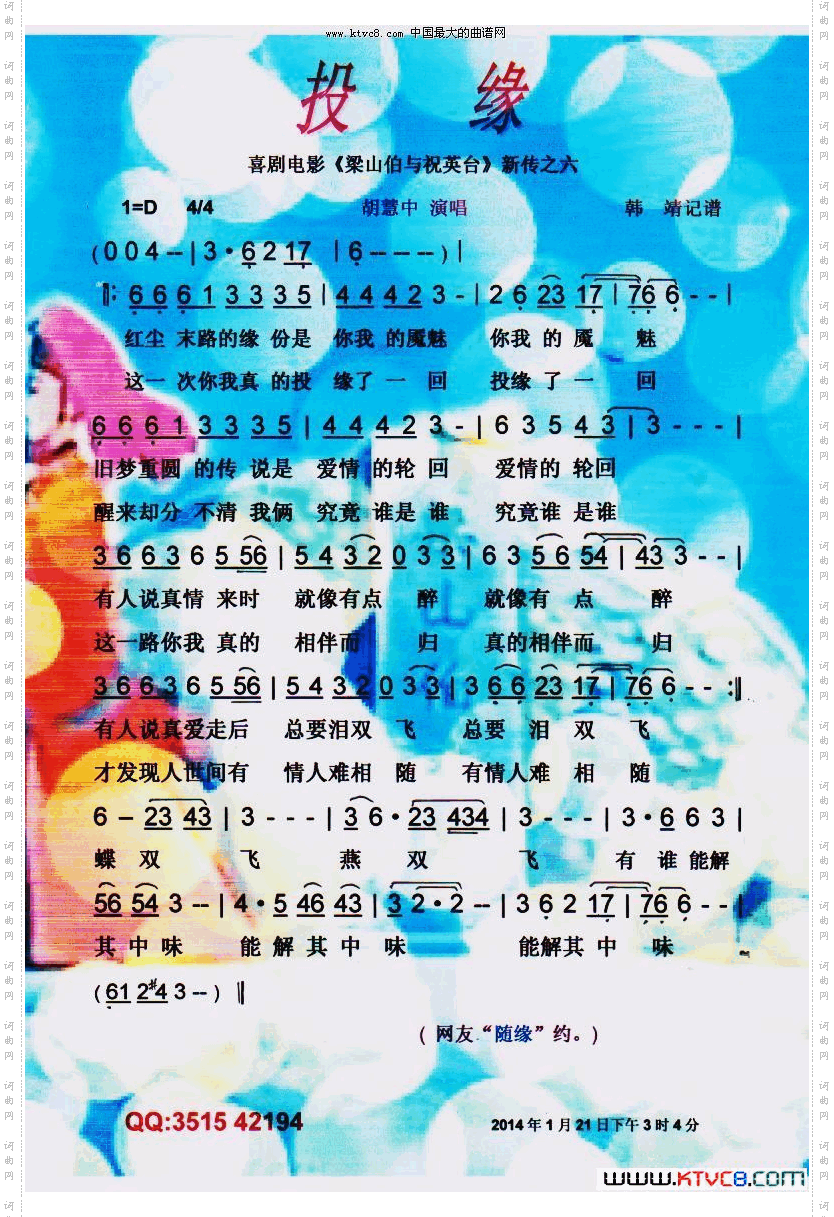 www.ktvc8.com 中国最大的曲谱网
投 缘
喜剧电影《梁山伯与祝英台》新传之六
1=D 4/4 胡慧中 演唱 韩 靖记谱
(0 0 4 -- | 3 · 6 2 17 | 6 -- -- ) |
‖: 6 6 6 1 3 3 3 5 | 4 4 4 2 3 - | 2 6 23 17 | 76 6 - - |
红尘 末路的缘 份是 你我 的魇魅 你我 的 魇 魅
这一 次你我真 的投 缘了 一 回 投缘 了 一 回
6 6 6 1 3 3 3 5 | 4 4 4 2 3 - | 6 3 5 4 3 | 3 - - - |
旧梦重圆 的传 说是 爱情 的轮 回 爱情的 轮回
醒来却分 不清 我俩 究竟 谁是 谁 究竟谁 是谁
3 6 6 3 6 5 56 | 5 4 3 2 0 3 3 | 6 3 5 6 54 | 43 3 - - |
有人说真情 来时 就像有点 醉 就像有 点 醉
这一路你我 真的 相伴而 归 真的相伴而 归
3 6 6 3 6 5 56 | 5 4 3 2 0 3 3 | 3 6 6 23 17 | 76 6 - - :‖
有人说真爱走后 总要泪双 飞 总要 泪 双 飞
才发现人世间有 情人难相 随 有情人难 相 随
6 - 23 43 | 3 - - - | 3 6 · 23 434 | 3 - - - | 3 · 6 6 3 |
蝶 双 飞 燕 双 飞 有 谁 能解
56 54 3 -- | 4 · 5 46 43 | 3 2 · 2 -- | 3 6 2 17 | 76 6 - - |
其 中 味 能 解 其 中 味 能解其 中 味
( 61 2#4 3 -- ) ‖
( 网友“随缘”约。)
QQ:3515 42194
2014 年 1 月 21 日下午 3 时 4 分
www.KTVC8.com